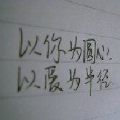 以你为圆心
以爱为半径